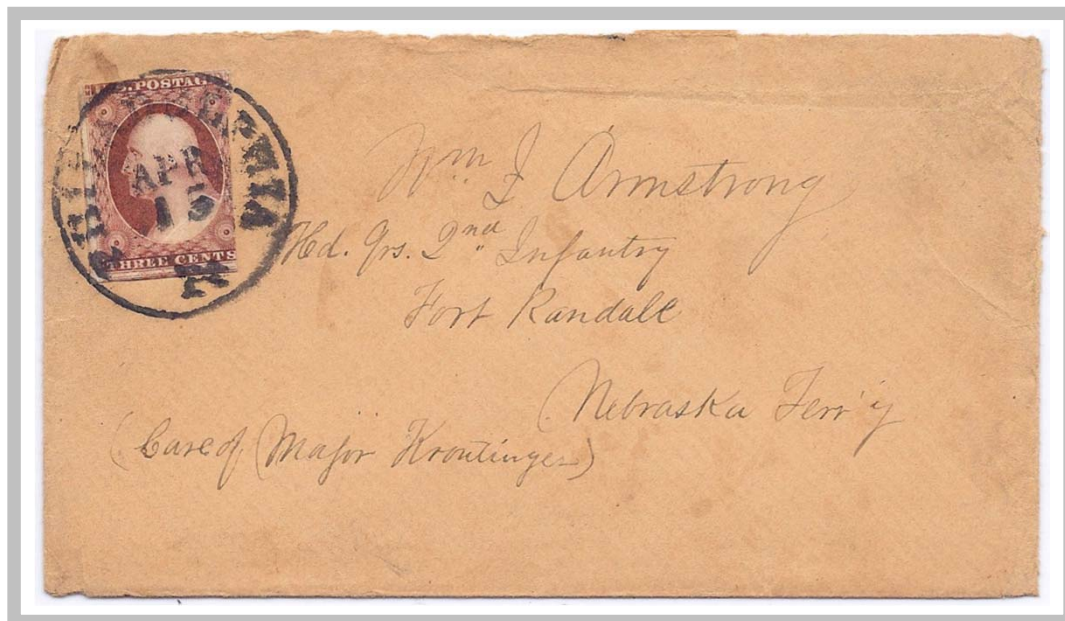 U.S. POSTAG
PHILADELPHIA
APR
15
THREE CENTS
Wm J Armstrong
Hd. Qrs. 2nd Infantry
Fort Randall
Nebraska Terr'y
(Care of Major Kroutinger)